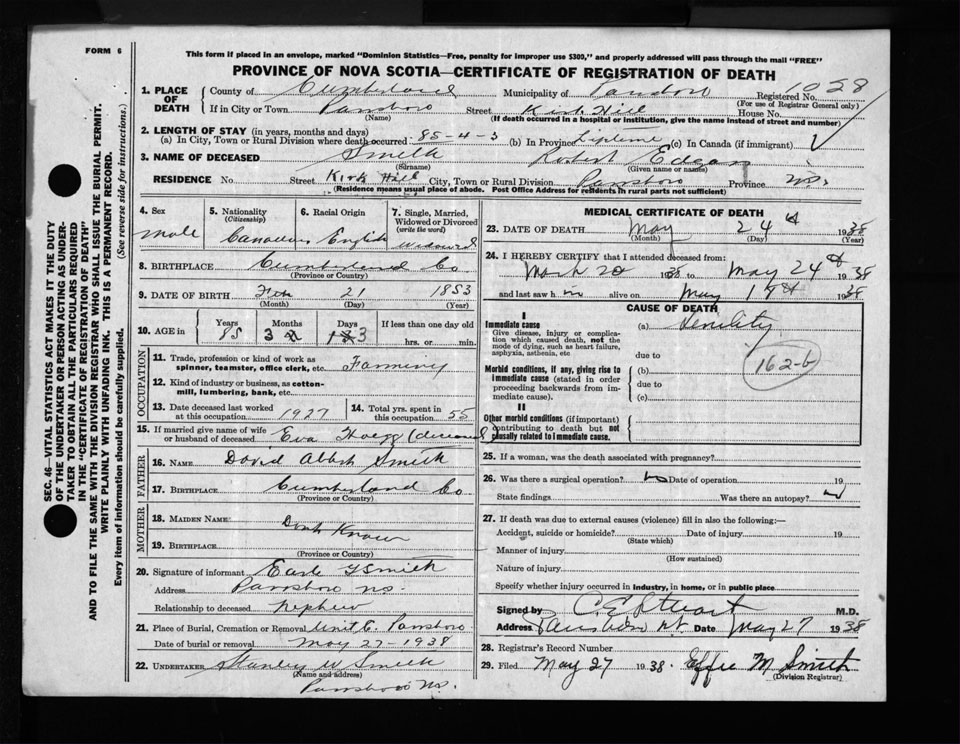 FORM 6
This form if placed in an envelope, marked "Dominion Statistics—Free, penalty for improper use $300," and properly addressed will pass through the mail "FREE"
PROVINCE OF NOVA SCOTIA—CERTIFICATE OF REGISTRATION OF DEATH
1. PLACE OF DEATH
County of Cumberland Municipality of Registered No. 28
(For use of Registrar General only)
If in City or Town Parrsboro Street Kirk Hill House No.
(Name) (If death occurred in a hospital or institution, give the name instead of street and number)
2. LENGTH OF STAY (in years, months and days)
(a) In City, Town or Rural Division where death occurred 85-4-3 (b) In Province Lifetime (c) In Canada (if immigrant)
3. NAME OF DECEASED Smith Robert Edgar
(Surname) (Given name or names)
RESIDENCE No. Street Kirk Hill City, Town or Rural Division Parrsboro Province N.S.
(Residence means usual place of abode. Post Office Address for residents in rural parts not sufficient)
4. Sex Male
5. Nationality (Citizenship) Canadian
6. Racial Origin English
7. Single, Married, Widowed or Divorced (write the word) Widowed
8. BIRTHPLACE Cumberland Co
(Province or Country)
9. DATE OF BIRTH Feb 21 1853
(Month) (Day) (Year)
10. AGE in Years 85 Months 3 Days 3 If less than one day old hrs. or min.
OCCUPATION
11. Trade, profession or kind of work as spinner, teamster, office clerk, etc. Farming
12. Kind of industry or business, as cotton-mill, lumbering, bank, etc.
13. Date deceased last worked at this occupation 1927
14. Total yrs. spent in this occupation 55
15. If married give name of wife or husband of deceased Eva (deceased)
FATHER
16. NAME David Smith
17. BIRTHPLACE Cumberland Co
(Province or Country)
MOTHER
18. MAIDEN NAME Dont Know
19. BIRTHPLACE
(Province or Country)
20. Signature of informant Earle Smith
Address Parrsboro NS.
Relationship to deceased Nephew
21. Place of Burial, Cremation or Removal Parrsboro
Date of burial or removal May 27-1938
22. UNDERTAKER Stanley W Smith
(Name and address)
Parrsboro NS.
MEDICAL CERTIFICATE OF DEATH
23. DATE OF DEATH May 24th 1938
(Month) (Day) (Year)
24. I HEREBY CERTIFY that I attended deceased from:
March 20 1938 to May 24th 1938
and last saw him alive on May 19th 1938
CAUSE OF DEATH
I
Immediate cause (a) Senility
Give disease, injury or complication which caused death, not the mode of dying, such as heart failure, asphyxia, asthenia, etc
due to
162-b
Morbid conditions, if any, giving rise to immediate cause (stated in order proceeding backwards from immediate cause).
(b)
due to
(c)
II
Other morbid conditions (if important) contributing to death but not causally related to immediate cause.
25. If a woman, was the death associated with pregnancy?
26. Was there a surgical operation? No Date of operation 19
State findings Was there an autopsy? No
27. If death was due to external causes (violence) fill in also the following:—
Accident, suicide or homicide? Date of injury 19
(State which)
Manner of injury
(How sustained)
Nature of injury
Specify whether injury occurred in industry, in home, or in public place
Signed by C. E. Stuart M.D.
Address Parrsboro NS Date May 27 1938
28. Registrar's Record Number
29. Filed May 27 1938. Effie M Smith
(Division Registrar)
SEC. 46—VITAL STATISTICS ACT MAKES IT THE DUTY
OF THE UNDERTAKER OR PERSON ACTING AS UNDERTAKER TO OBTAIN ALL THE PARTICULARS REQUIRED
IN THE "CERTIFICATE OF REGISTRATION OF DEATH"
AND TO FILE THE SAME WITH THE DIVISION REGISTRAR WHO SHALL ISSUE THE BURIAL PERMIT.
WRITE PLAINLY WITH UNFADING INK. THIS IS A PERMANENT RECORD.
Every item of information should be carefully supplied. (See reverse side for instructions.)